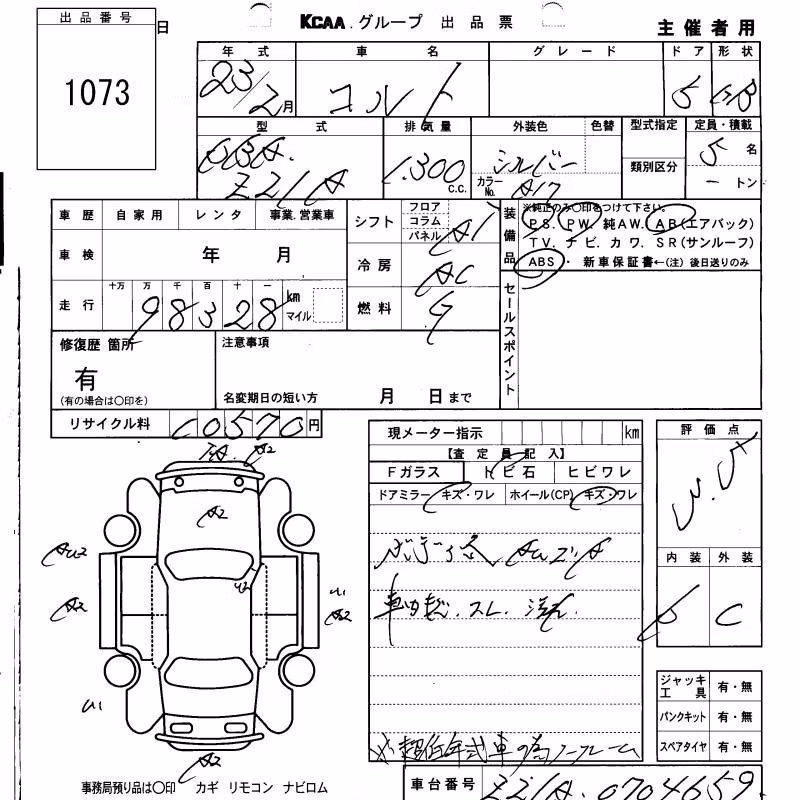 出品番号
1073
日
KCAA.グループ 出品票
主催者用
年式 車名 グレード ドア 形状
23/2月 コルト 5 HB
型式 排気量 外装色 色替 型式指定 定員・積載
DBA. 1.300 C.C. シルバー 類別区分 5名
Z21A カラーNo. A17 ートン
車歴 自家用 レンタ 事業.営業車
シフト フロア コラム パネル AT
装備品 ※純正のみ○印をつけて下さい。
PS. PW. 純AW. AB(エアバック)
TV. ナビ. カワ. SR(サンルーフ)
ABS ・ 新車保証書←(注)後日送りのみ
車検 年 月
冷房 AC
走行 十万 万 千 百 十 一
98328 km マイル
燃料 G
セールスポイント
修復歴 箇所
有
(有の場合は○印を)
注意事項
名変期日の短い方 月 日まで
リサイクル料 10570円
現メーター指示 km
【査定員記入】
Fガラス トビ石 ヒビワレ
ドアミラー キズ・ワレ ホイール(CP) キズ・ワレ
評価点
内装 外装
C
A2
A2
U2
AU2
A2
U1
U1
A2
車内 スレ.
※超低年式車の為ノークレーム
ジャッキ工具 有・無
パンクキット 有・無
スペアタイヤ 有・無
事務局預り品は○印 カギ リモコン ナビロム
車台番号 Z21A-0704659